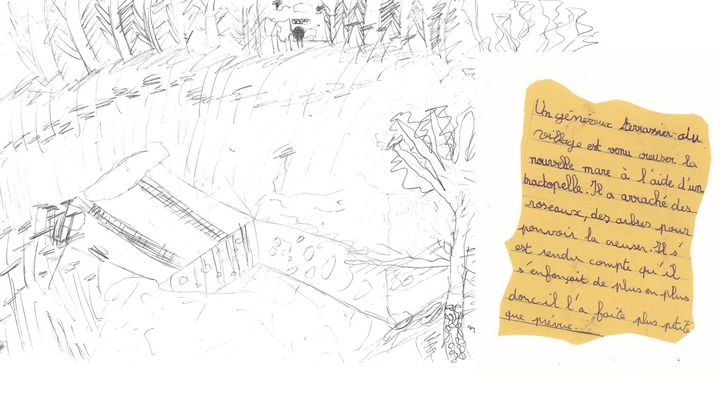 Un généreux terrassier du
village est venu creuser la
nouvelle mare à l'aide d'un
tractopelle. Il a arraché des
roseaux, des arbres pour
pouvoir la creuser. Il s'
est rendu compte qu'il
s'enfonçait de plus en plus
donc il l'a faite plus ptite
que prévue.